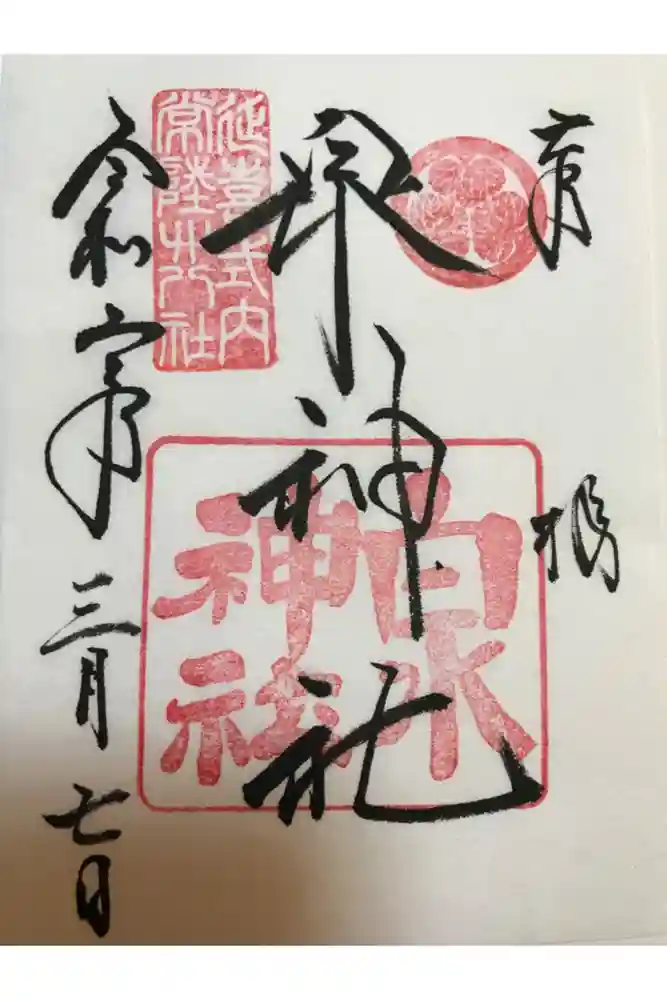 奉拝
泉神社
延喜式内
常陸廿八社
泉
神社
令和六年三月七日